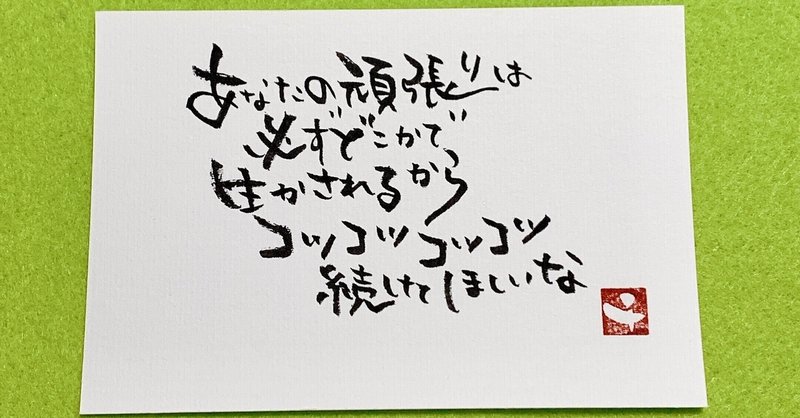 あなたの頑張りは
必ずどこかで
生かされるから
コツコツコツコツ
続けてほしいな